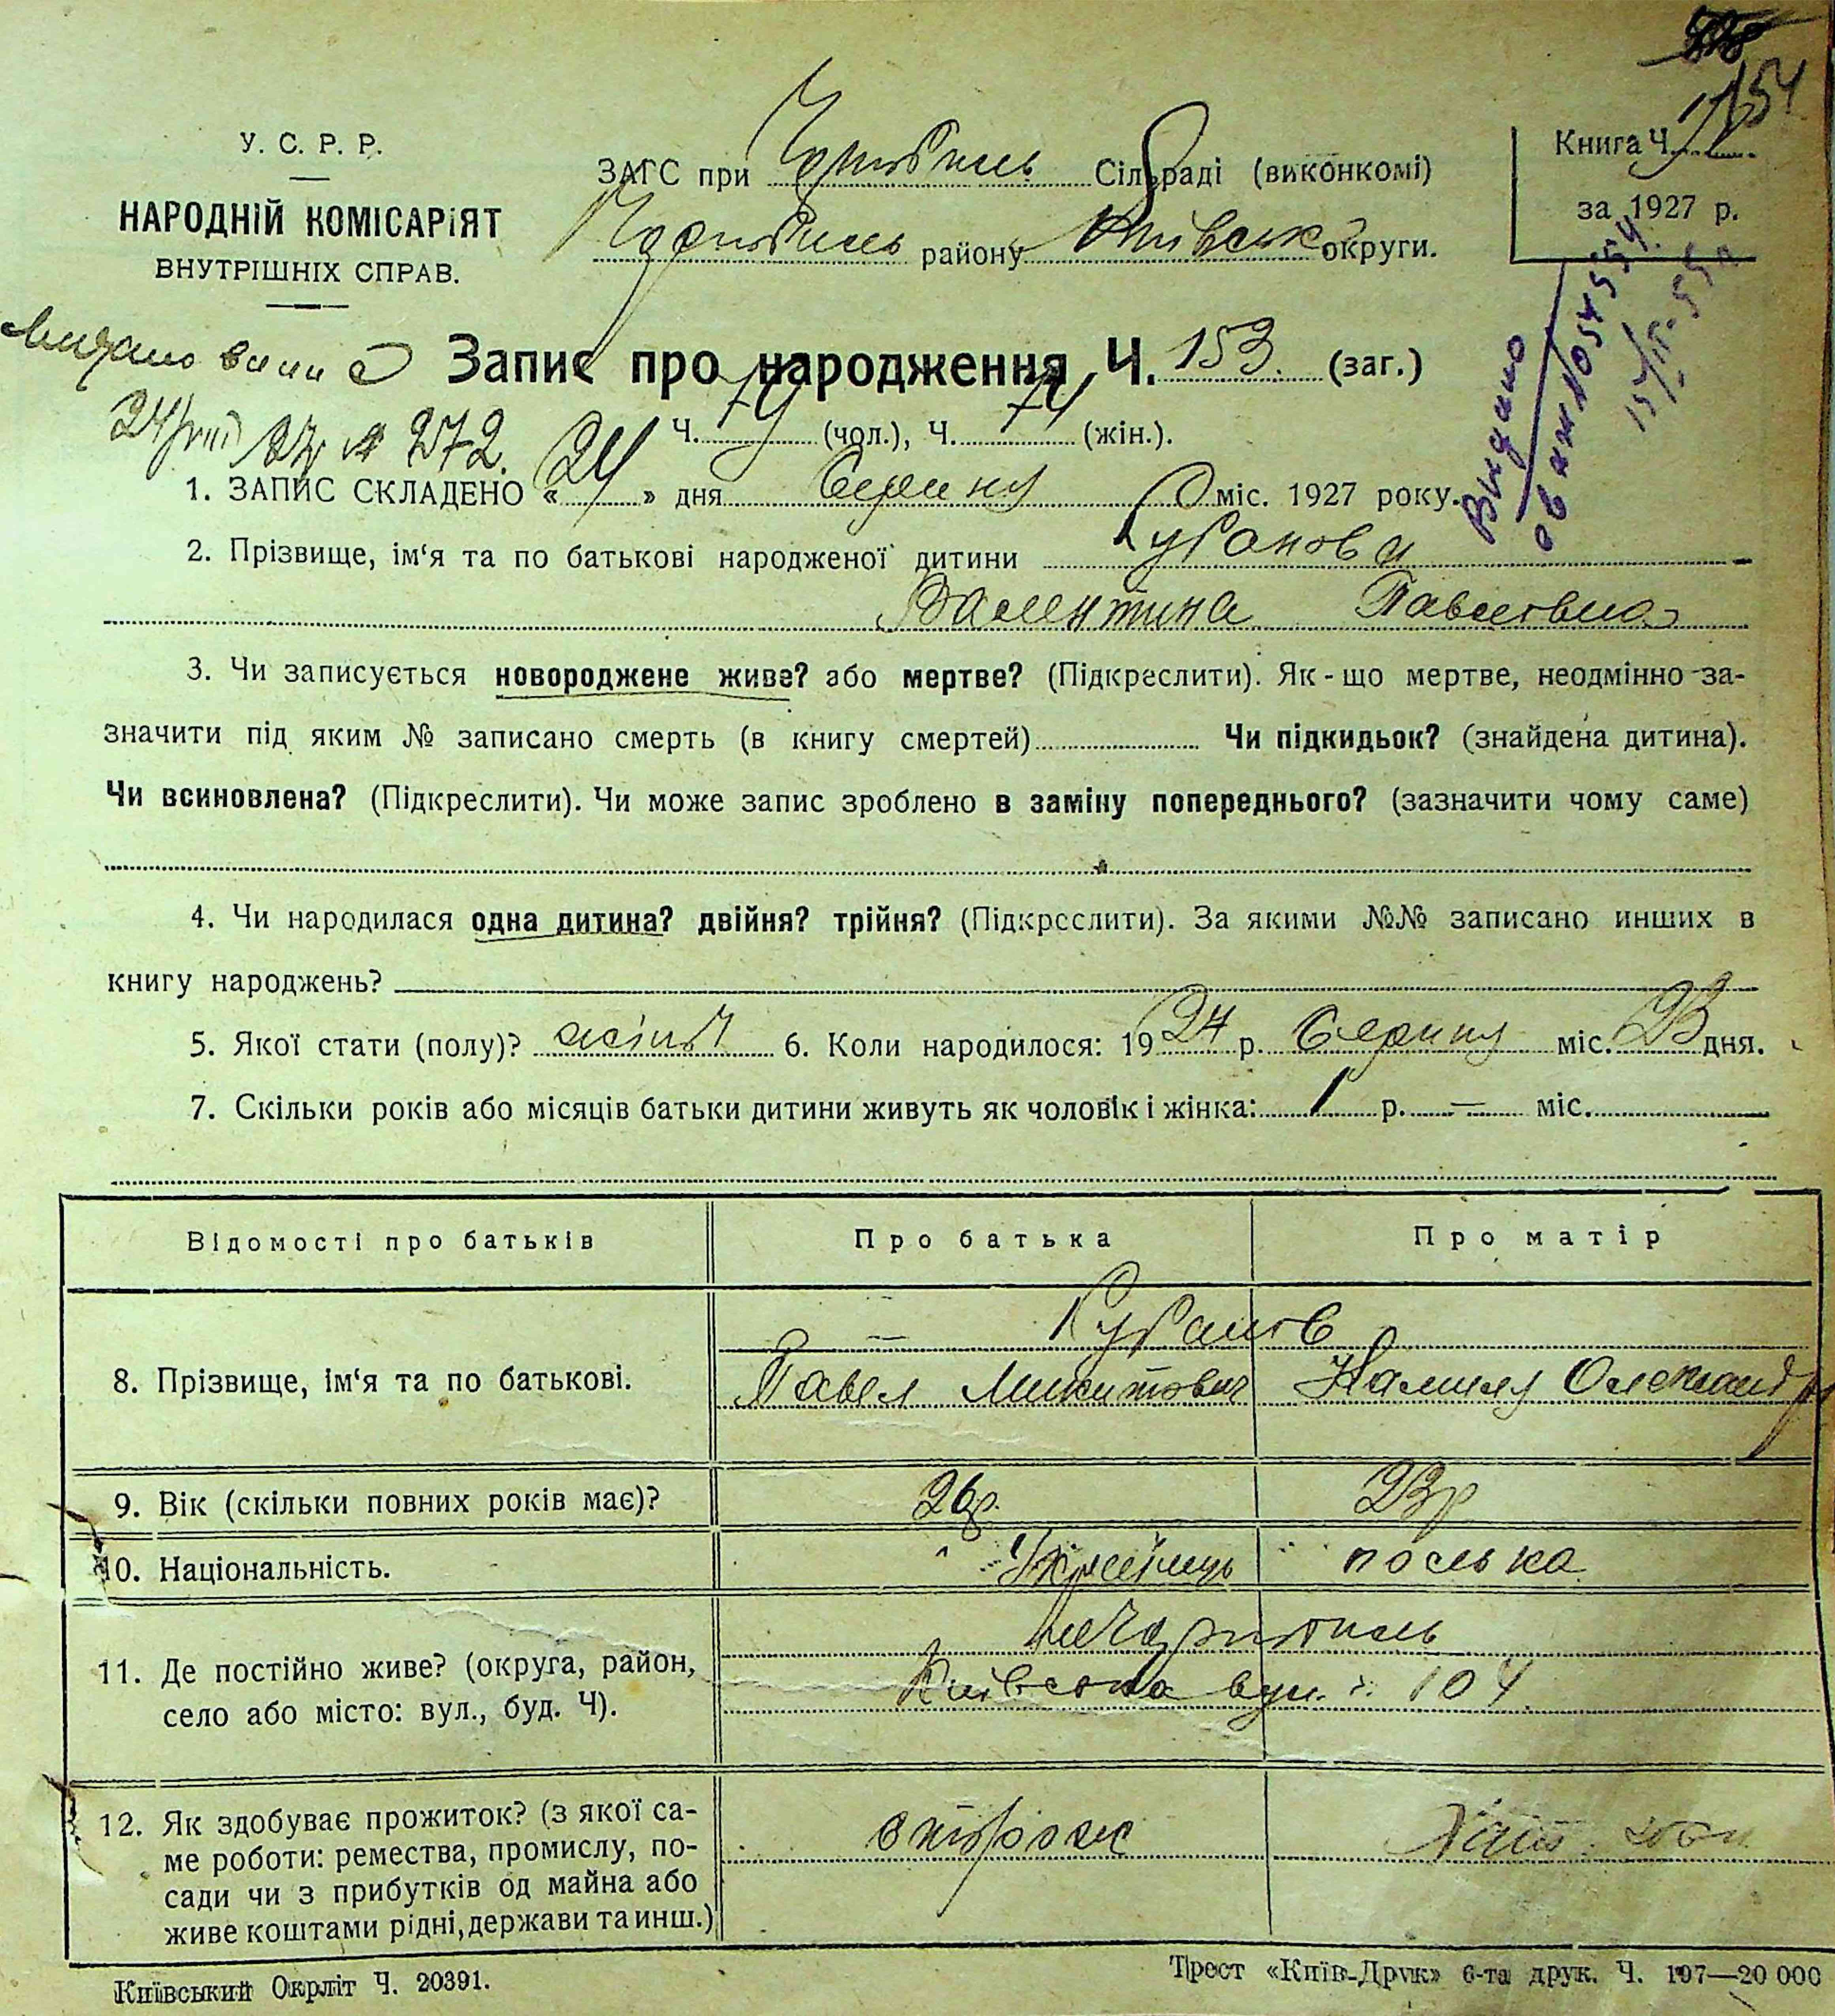 154
У. С. Р. Р.
НАРОДНІЙ КОМІСАРІЯТ
ВНУТРІШНІХ СПРАВ.
ЗАГС при Чорнобиль Сільраді (виконкомі)
Чорнобиль району Київськ округи.
Книга Ч.
за 1927 р.
Видано
Видано випис
24/VIII 27р № 272.
Запис про народження Ч. 153. (заг.)
Ч. 79 (чол.), Ч. 74 (жін.).
1. ЗАПИС СКЛАДЕНО « 24 » дня Серпня міс. 1927 року.
2. Прізвище, ім‘я та по батькові народженої дитини Кубанова
Валентина Павловна
3. Чи записується новороджене живе? або мертве? (Підкреслити). Як-що мертве, неодмінно за-
значити під яким № записано смерть (в книгу смертей) Чи підкидьок? (знайдена дитина).
Чи всиновлена? (Підкреслити). Чи може запис зроблено в заміну попереднього? (зазначити чому саме)
4. Чи народилася одна дитина? двійня? трійня? (Підкреслити). За якими №№ записано инших в
книгу народжень?
5. Якої стати (полу)? жіноч 6. Коли народилося: 1927 р. Серпня міс. 23 дня.
7. Скільки років або місяців батьки дитини живуть як чоловік і жінка: 1 р. — міс.
Відомості про батьків Про батька Про матір
Кубанов
8. Прізвище, ім‘я та по батькові. Павел Микитович Камиля Олександр
9. Вік (скільки повних років має)? 26р. 23р
10. Національність. Українець полька
м Чорнобиль
11. Де постійно живе? (округа, район, Київська вул. ч. 104
село або місто: вул., буд. Ч).
12. Як здобуває прожиток? (з якої са-
ме роботи: ремества, промислу, по-
сади чи з прибутків од майна або
живе коштами рідні, держави та инш.)
сторож Хатн.
Київський Окрліт Ч. 20391.
Трест «Київ-Друк» 6-та друк. Ч. 197—20 000